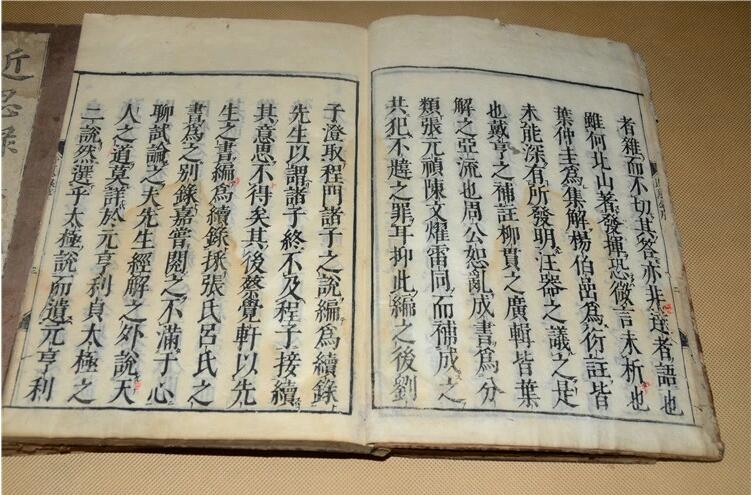 者雜而不切其答亦非達者語也
雖何北山著發揮恐微言未析也
葉仲圭為集解楊伯嵒為衍註皆
未能深有所發明汪器之議之是
也戴亨之補註柳貫之廣輯皆葉
解之亞流也周公恕亂成書為分
類張元禎陳文耀雷同而補成之
共犯不韙之罪耳抑此編之後劉
子澄取程門諸子之說編為續錄
先生以謂諸子終不及程子接續
其意思不得矣其後蔡覺軒以先
生之書編為續錄採張氏呂氏之
書為之別錄嘉嘗閱之不滿于心
聊試論之夫先生經解之外說天
人之道莫詳於元亨利貞太極之
二說然選乎太極說而遺元亨利
近思錄